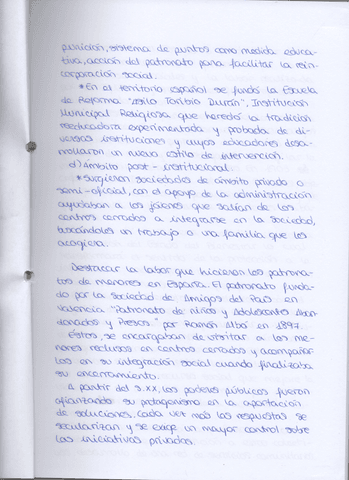 punición, sistema de puntos como medida educa-
tiva, acción del patronato para facilitar la rein-
corporación social.
*En el territorio español se fundó la Escuela
de Reforma "asilo Toribio Durán", Institución
Municipal Religiosa que heredó la tradición
reeducadora experimentada y probada de di-
versas instituciones y cuyos educadores desa-
rrollaron un nuevo estilo de intervención.
d) Ámbito post-institucional.
*Surgieron sociedades de ámbito privado o
semi-oficial, con el apoyo de la administración
ayudaban a los jóvenes que salían de los
centros cerrados a integrarse en la sociedad,
buscándoles un trabajo o una familia que les
acogiera.
Destacar la labor que hicieron los patrona-
tos de menores en España. El patronato funda-
do por la Sociedad de Amigos del País en
Valencia "Patronato de niños y Adolescentes Aban-
donados y Presos" por Ramón Albó en 1897.
Éstos, se encargaban de visitar a los me-
nores reclusos en centros cerrados y acompañar
los en su integración social cuando finalizaba
su encerramiento.
A partir del S.XX, los poderes públicos fueron
afianzando su protagonismo en la aportación
de soluciones, cada vez más las respuestas se
secularizan y se exige un mayor control sobre
las iniciativas privadas.